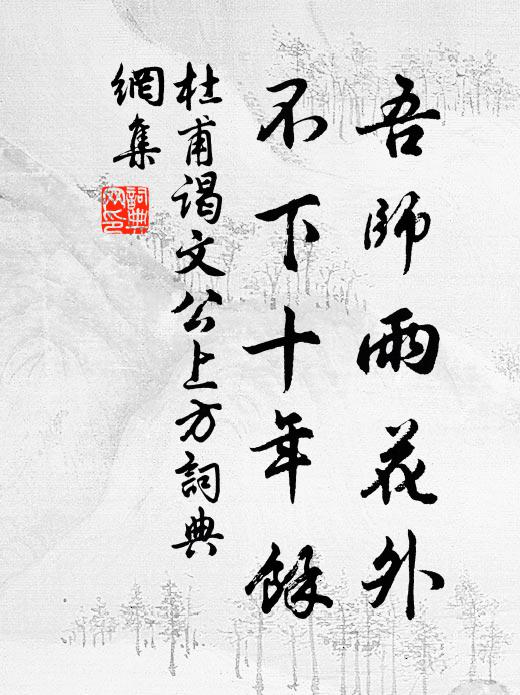 吾師雨花外
不下十年餘
杜甫謁文公上方詞典
網集
詞典
网印